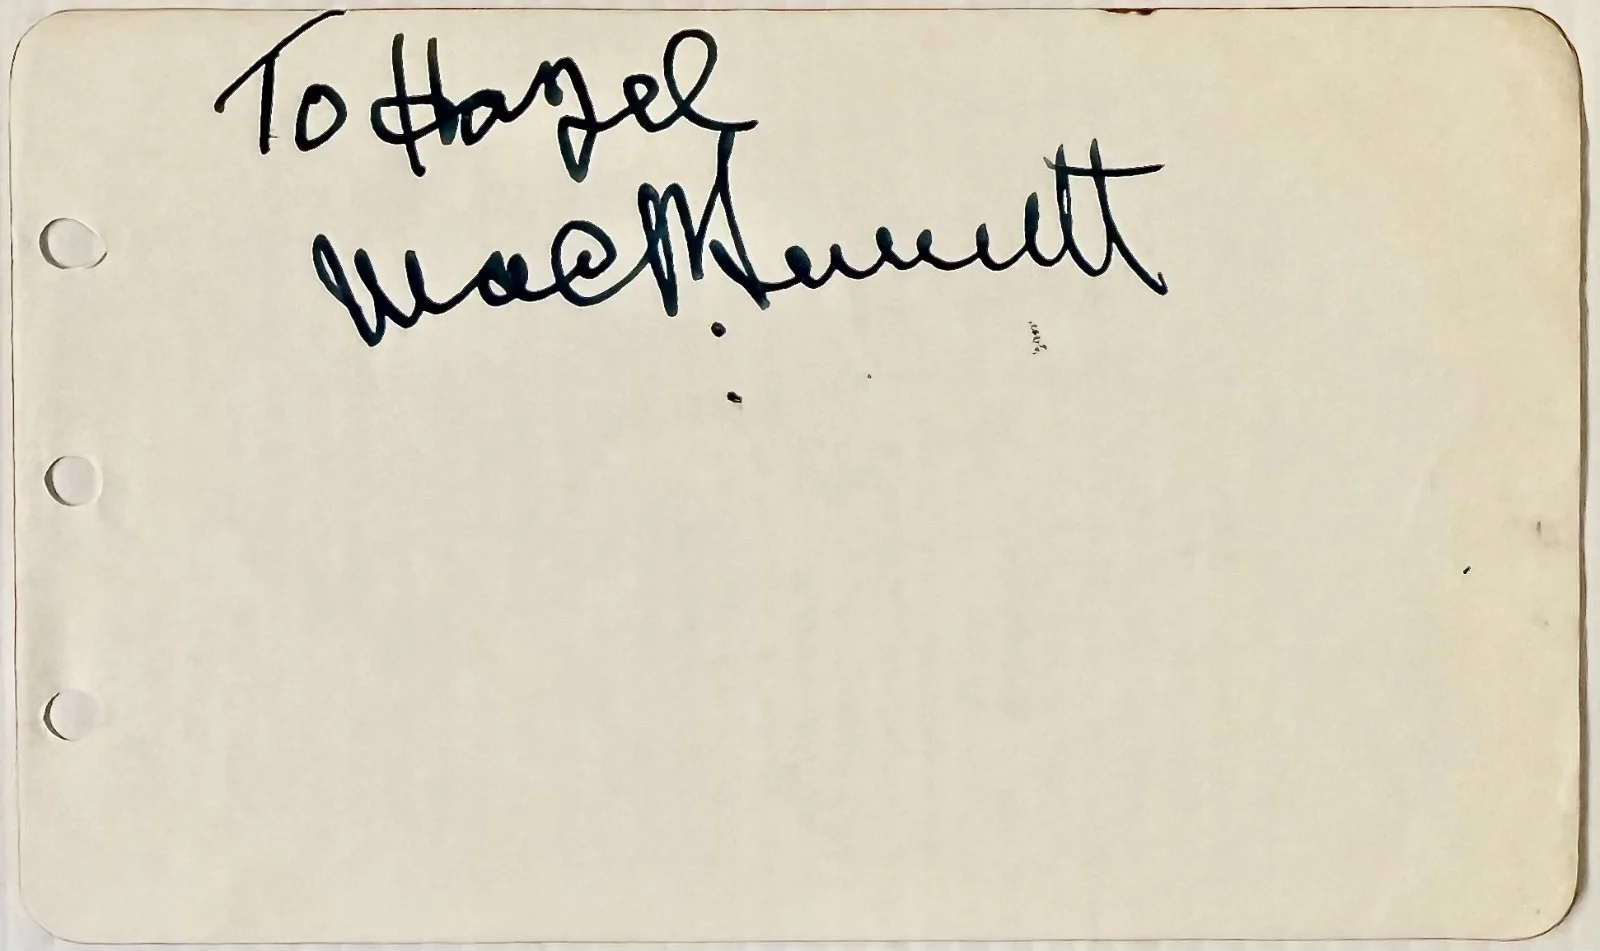 To Hazel
Mack Sennett